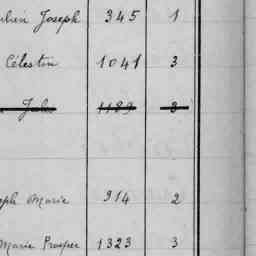 Joseph 345 1
Célestin 1041 3
Jules 1189 3
Marie 914 2
Marie Prosper 1323 3